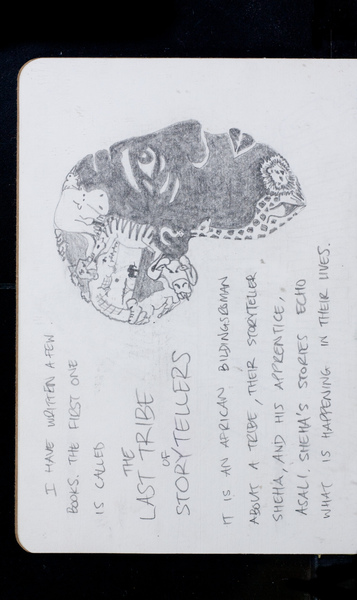 I HAVE WRITTEN A FEW
BOOKS. THE FIRST ONE
IS CALLED
THE
LAST TRIBE
OF
STORYTELLERS
IT IS AN AFRICAN BILDINGSROMAN
ABOUT A TRIBE, THEIR STORYTELLER
SHEHA, AND HIS APPRENTICE,
ASALI. SHEHA'S STORIES ECHO
WHAT IS HAPPENING IN THEIR LIVES.